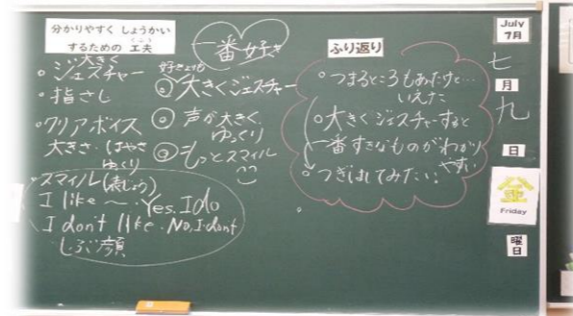 分かりやすく しょうかい
するための 工夫
くふう
一番好き
大きく
・ジェスチャー
・指さし
・クリアボイス
大きさ・はやさ
ゆっくり
・スマイル(表じょう)
I like ～ ・Yes. I do
I don't like ・No, I don't
しぶ顔
好きよりも
◎大きくジェスチャー
◎声が大きく、
ゆっくり
◎もっとスマイル
ふり返り
・つまるところもあったけど…
いえた
・大きくジェスチャーすると
一番すきなものがわかり
やすい
July
7月
七
月
九
日
金
Friday
曜
日